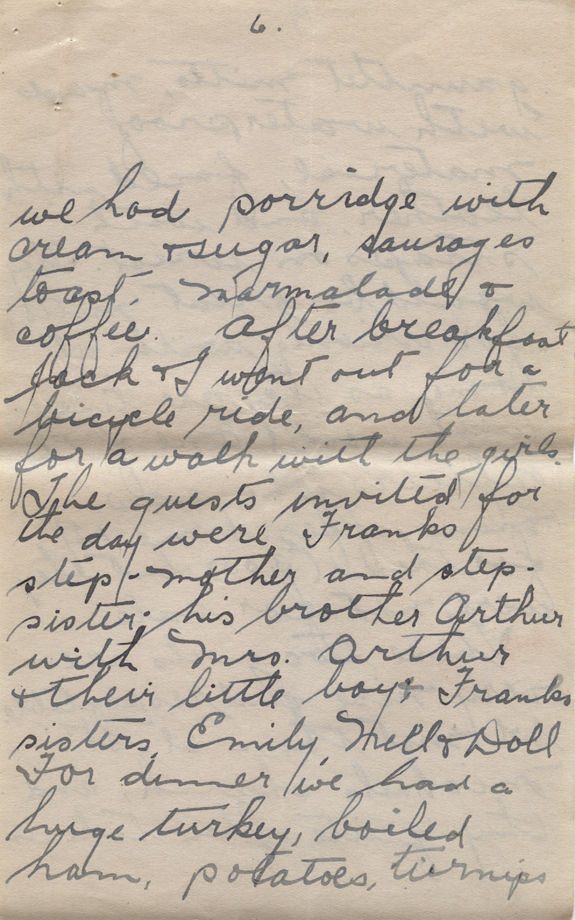 6.
we had porridge with
cream & sugar, sausages
toast, marmalade &
coffee. After breakfast
Jack & I went out for a
bicycle ride, and later
for a walk with the girls.
The guests invited for
the day were Franks
step-mother and step-
sister; his brother Arthur
with Mrs. Arthur
& their little boy; Franks
sisters, Emily, Nell & Doll
For dinner we had a
huge turkey, boiled
ham, potatoes, turnips